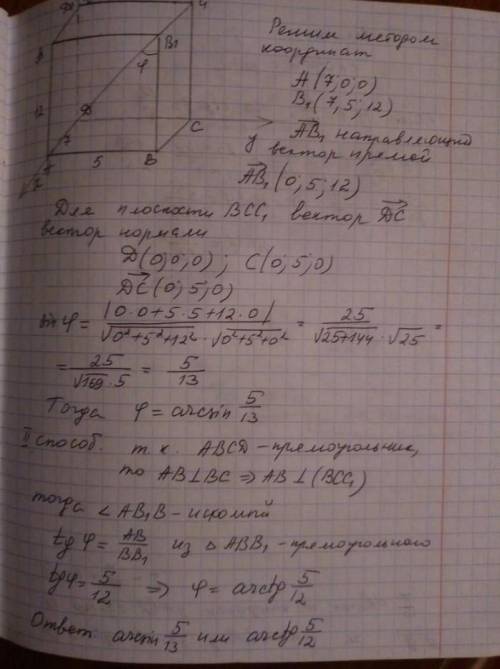 Решим методом
координат
A(7;0;0)
B₁(7;5;12)
AB₁ направляющий
вектор прямой
AB₁(0;5;12)
B₁
φ
12
D
C
y
7
5
B
Для плоскости BCC₁ вектор DC
вектор нормали
D(0;0;0); C(0;5;0)
DC(0;5;0)
sin φ = |0·0+5·5+12·0| / (√0²+5²+12² · √0²+5²+0²) = 25 / (√25+144 · √25) =
= 25 / (√169 · 5) = 5/13
Тогда φ = arcsin 5/13
II способ. т.к. ABCD – прямоугольник,
то AB⊥BC ⇒ AB⊥(BCC₁)
тогда ∠AB₁B – искомый
tg φ = AB/BB₁ из △ABB₁ – прямоугольного
tgφ = 5/12 ⇒ φ = arctg 5/12
Ответ arcsin 5/13 или arctg 5/12